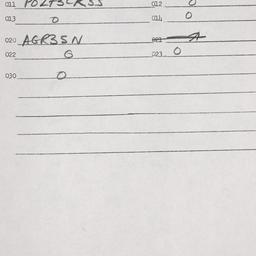 011 POLTSCKSS 012 0
013 0 014 0
020 AGR3SN 021
022 0 023 0
030 0